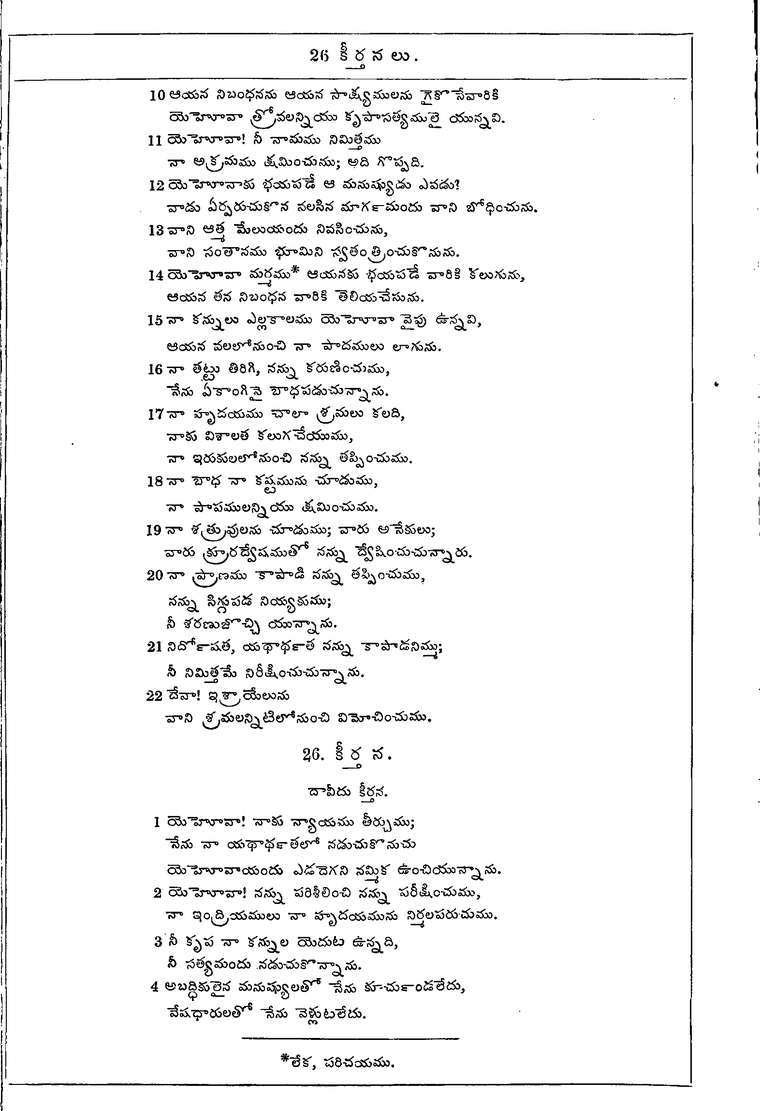 26 కీర్తనలు.
10 ఆయన నిబంధనను ఆయన సాక్ష్యములను గైకొనేవారికి
యెహోవా త్రోవలన్నియు కృపాసత్యములై యున్నవి.
11 యెహోవా! నీ నామము నిమిత్తము
నా అక్రమము క్షమించును; అది గొప్పది.
12 యెహోవాకు భయపడే ఆ మనుష్యుడు ఎవడు?
వాడు ఏర్పరుచుకొన వలసిన మార్గమందు వాని బోధించును.
13 వాని ఆత్మ మేలుయందు నివసించును,
వాని సంతానము భూమిని స్వతంత్రించుకొనును.
14 యెహోవా మర్మము* ఆయనకు భయపడే వారికి కలుగును,
ఆయన తన నిబంధన వారికి తెలియచేసును.
15 నా కన్నులు ఎల్లకాలము యెహోవా వైపు ఉన్నవి,
ఆయన వలలోనుంచి నా పాదములు లాగును.
16 నా తట్టు తిరిగి, నన్ను కరుణించుము,
నేను ఏకాంగినై బాధపడుచున్నాను.
17 నా హృదయము చాలా శ్రమలు కలది,
నాకు విశాలత కలుగచేయుము,
నా ఇరుకులలోనుంచి నన్ను తప్పించుము.
18 నా బాధ నా కష్టమును చూడుము,
నా పాపములన్నియు క్షమించుము.
19 నా శత్రువులను చూడుము; వారు అనేకులు;
వారు క్రూరద్వేషముతో నన్ను ద్వేషించుచున్నారు.
20 నా ప్రాణము కాపాడి నన్ను తప్పించుము,
నన్ను సిగ్గుపడ నియ్యకుము;
నీ శరణుజొచ్చి యున్నాను.
21 నిర్దోషత, యథార్థత నన్ను కాపాడనిమ్ము;
నీ నిమిత్తమే నిరీక్షించుచున్నాను.
22 దేవా! ఇశ్రాయేలును
వాని శ్రమలన్నిటిలోనుంచి విమోచించుము.
26. కీర్తన.
దావీదు కీర్తన.
1 యెహోవా! నాకు న్యాయము తీర్చుము;
నేను నా యథార్థతలో నడుచుకొనుచు
యెహోవాయందు ఎడతెగని నమ్మిక ఉంచియున్నాను.
2 యెహోవా! నన్ను పరిశీలించి నన్ను పరీక్షించుము,
నా ఇంద్రియములు నా హృదయమును నిర్మలపరుచుము.
3 నీ కృప నా కన్నుల యెదుట ఉన్నది,
నీ సత్యమందు నడుచుకొన్నాను.
4 అబద్ధికులైన మనుష్యులతో నేను కూర్చుండలేదు,
వేషధారులతో నేను వెళ్లుటలేదు.
*లేక, పరిచయము.